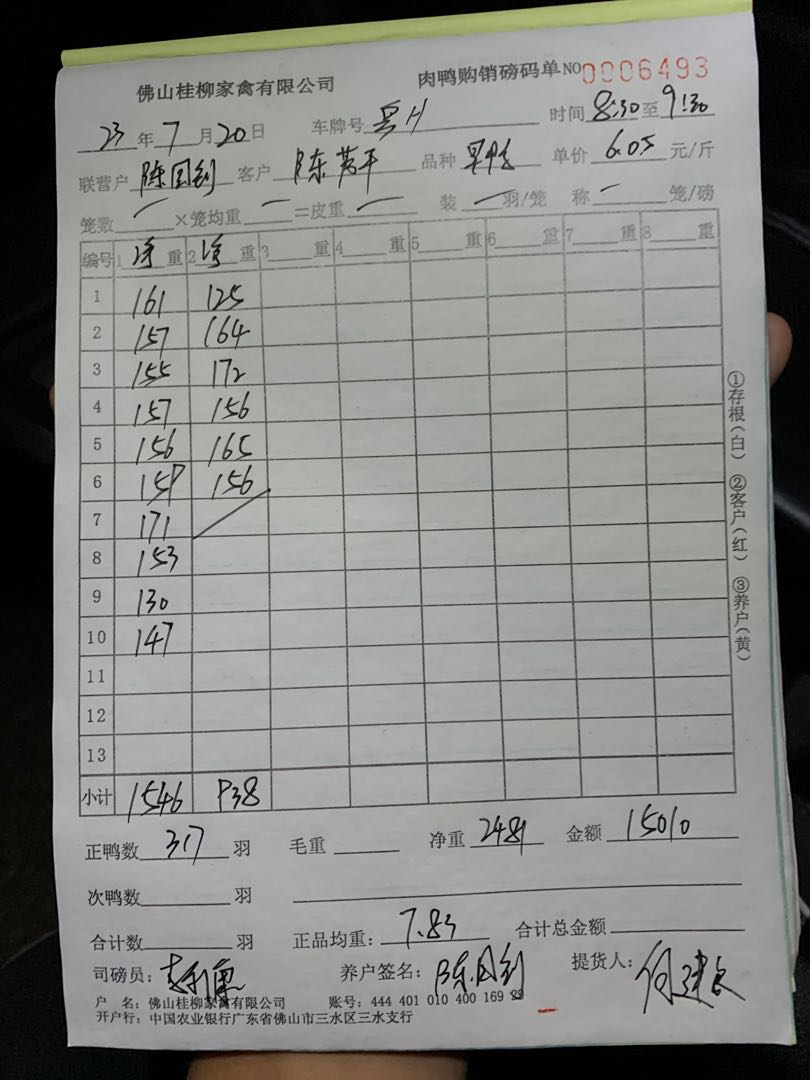 佛山桂柳家禽有限公司 肉鸭购销磅码单 NO 0006493
23 年 7 月 20 日 车牌号 时间 8:30 至 9:30
联营户 陈国钊 客户 陈 平 品种 单价 6.05 元/斤
笼数 一 ×笼均重 一 =皮重 一 装 一 羽/笼 称 一 笼/磅
编号 1 净 重 2 净 重 3 重 4 重 5 重 6 重 7 重 8 重
1 161 125
2 157 164
3 155 172
4 157 156
5 156 165
6 159 156
7 171
8 153
9 130
10 147
11
12
13
小计 1546 938
正鸭数 317 羽 毛重 净重 2484 金额 15010
次鸭数 羽
合计数 羽 正品均重: 7.83 合计总金额
司磅员: 养户签名: 陈国钊 提货人: 何建
户 名: 佛山桂柳家禽有限公司 账号: 444 401 010 400 169 89
开户行: 中国农业银行广东省佛山市三水区三水支行
①存根(白) ②客户(红) ③养户(黄)